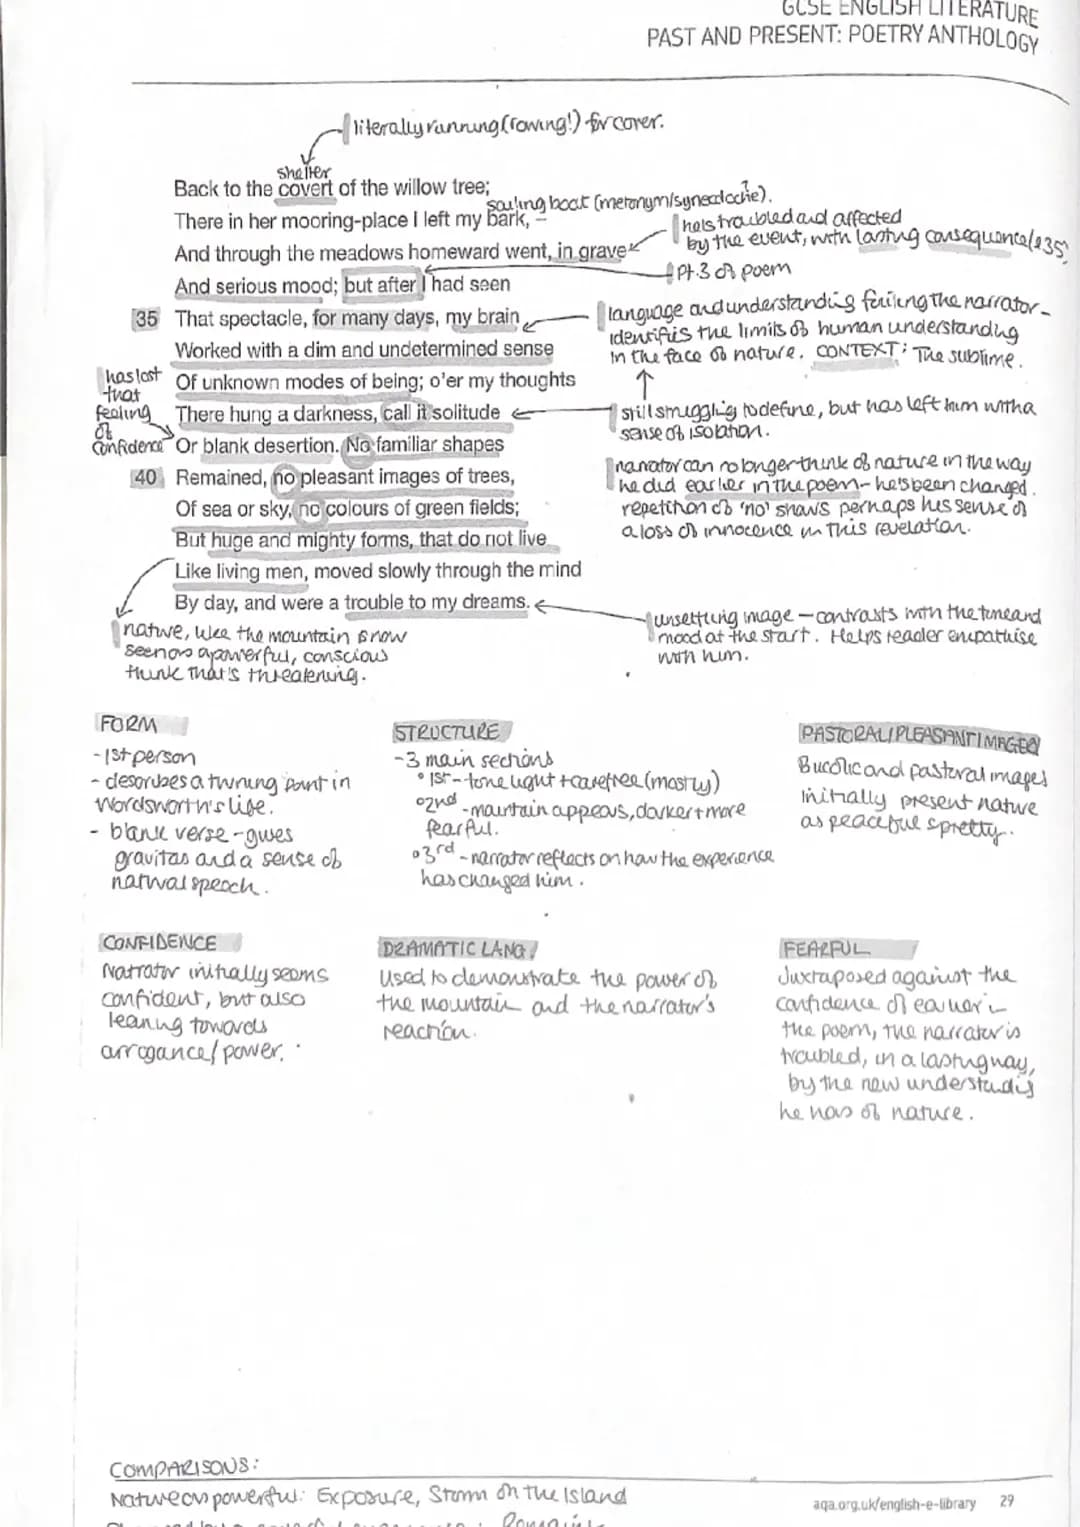 GCSE ENGLISH LITERATURE
PAST AND PRESENT: POETRY ANTHOLOGY
literally running (rowing!) for cover.
shelter
Back to the covert of the willow tree;
sailing boat (metonym/synecdoche?).
There in her mooring-place I left my bark, –
he's troubled and affected
by the event, with lasting consequence (l35)
And through the meadows homeward went, in grave
Pt.3 of poem
And serious mood; but after I had seen
35 That spectacle, for many days, my brain
language and understanding failing the narrator -
identifies the limits of human understanding
in the face of nature. CONTEXT: The sublime.
Worked with a dim and undetermined sense
has lost
that
feeling
of
confidence
Of unknown modes of being; o'er my thoughts
There hung a darkness, call it solitude
still struggling to define, but has left him with a
sense of isolation.
Or blank desertion. No familiar shapes
40 Remained, no pleasant images of trees,
narrator can no longer think of nature in the way
he did earlier in the poem - he's been changed.
repetition of 'no' shows perhaps his sense of
a loss of innocence in this revelation.
Of sea or sky, no colours of green fields;
But huge and mighty forms, that do not live
Like living men, moved slowly through the mind
By day, and were a trouble to my dreams.
unsettling image - contrasts with the tone and
mood at the start. Helps reader empathise
with him.
nature, like the mountain is now
seen as a powerful, conscious
think that's threatening.
FORM
- 1st person
- describes a turning point in
Wordsworth's life.
- blank verse - gives
gravitas and a sense of
natural speech.
STRUCTURE
- 3 main sections
° 1st - tone light + carefree (mostly)
° 2nd - mountain appears, darker + more
fearful.
° 3rd - narrator reflects on how the experience
has changed him.
PASTORAL/PLEASANT IMAGERY
Bucolic and pastoral images
initially present nature
as peaceful & pretty.
CONFIDENCE
Narrator initially seems
confident, but also
leaning towards
arrogance/power.
DRAMATIC LANG/
Used to demonstrate the power of
the mountain and the narrator's
reaction.
FEARFUL
Juxtaposed against the
confidence of earlier in
the poem, the narrator is
troubled, in a lasting way,
by the new understandig
he has of nature.
COMPARISONS:
Nature as powerful: Exposure, Storm on the Island
aqa.org.uk/english-e-library 29